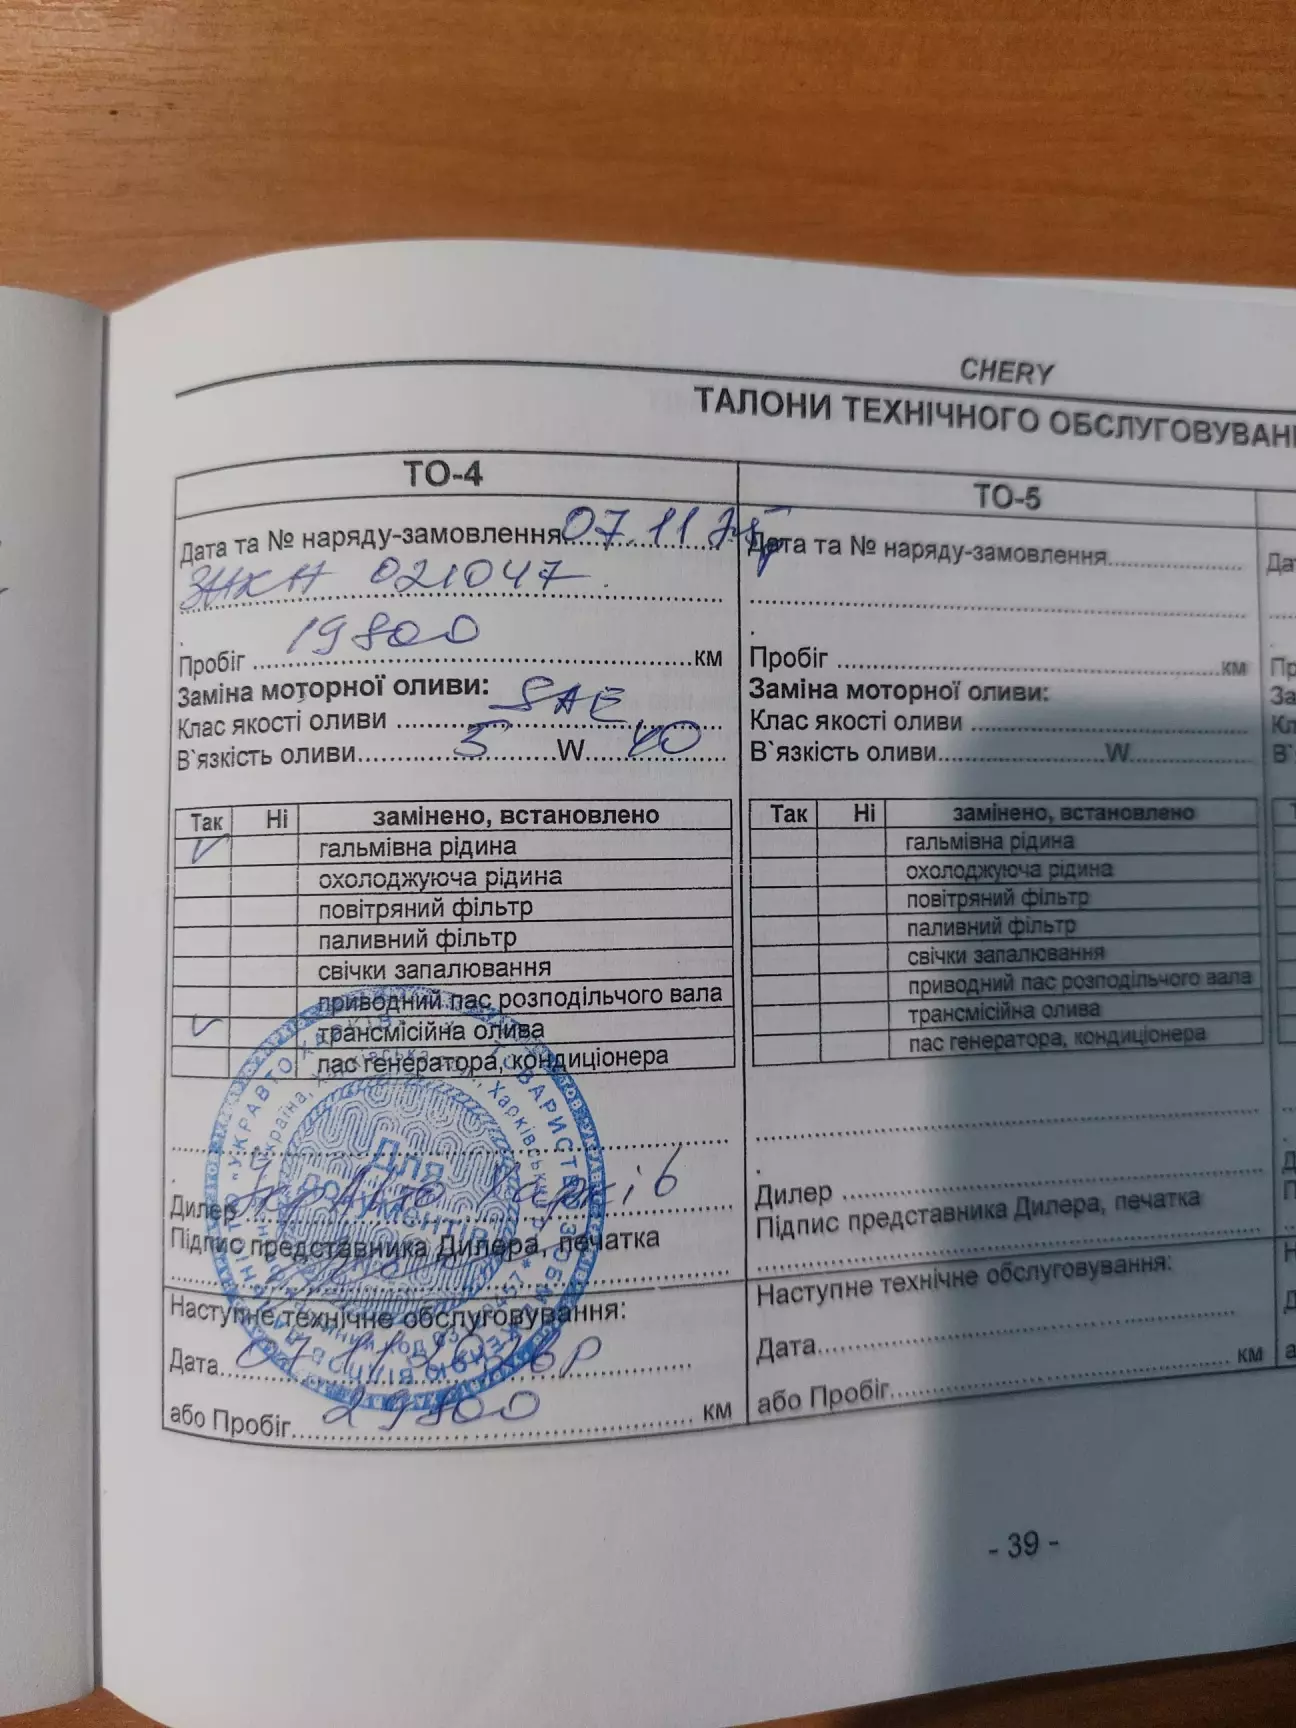 CHERY
ТАЛОНИ ТЕХНІЧНОГО ОБСЛУГОВУВАН
ТО-4
Дата та № наряду-замовлення 07.11
ЗНХА 021047
Пробіг 19800 км
Заміна моторної оливи:
Клас якості оливи SAE
В`язкість оливи 5 W 40
Так Ні замінено, встановлено
гальмівна рідина
охолоджуюча рідина
повітряний фільтр
паливний фільтр
свічки запалювання
приводний пас розподільчого вала
трансмісійна олива
пас генератора, кондиціонера
Для
документів
Дилер Харків
Підпис представника Дилера, печатка
Наступне технічне обслуговування:
Дата 07.11.2026р
або Пробіг 29800 км
ТО-5
Дата та № наряду-замовлення
Пробіг км
Заміна моторної оливи:
Клас якості оливи
В`язкість оливи W
Так Ні замінено, встановлено
гальмівна рідина
охолоджуюча рідина
повітряний фільтр
паливний фільтр
свічки запалювання
приводний пас розподільчого вала
трансмісійна олива
пас генератора, кондиціонера
Дилер
Підпис представника Дилера, печатка
Наступне технічне обслуговування:
Дата
або Пробіг км
- 39 -